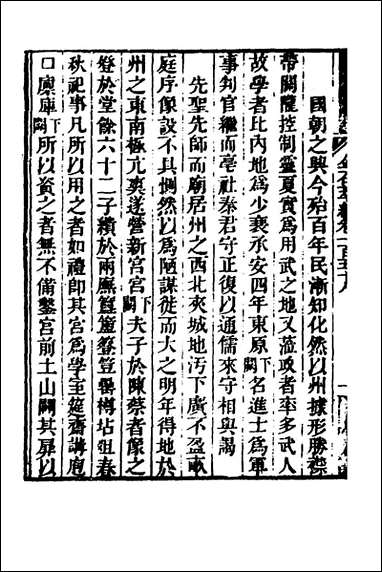 國朝之興今殆百年民漸知化然以州據形勝襟
帶關隴控制靈夏實為用武之地又蒞政者率多武人
故學者比內地為少襄承安四年東原下闕名進士為軍
事判官繼而亳社秦君守正復以通儒來守相與謁
先聖先師而廟居州之西北夾城地汚下廣不盈畝
庭序像設不具惻然以為陋謀徙而大之明年得地於
州之東南極亢爽遂營新宮宮下闕夫子於陳蔡者像之
登於堂餘六十二子繢於兩廡簠簋籩豆罍樽坫俎春
秋祀事凡所以用之者如禮即其宮為學至筵齋講庖
口廩庫下闕所以資之者無不備鑿宮前土山闢其扉以